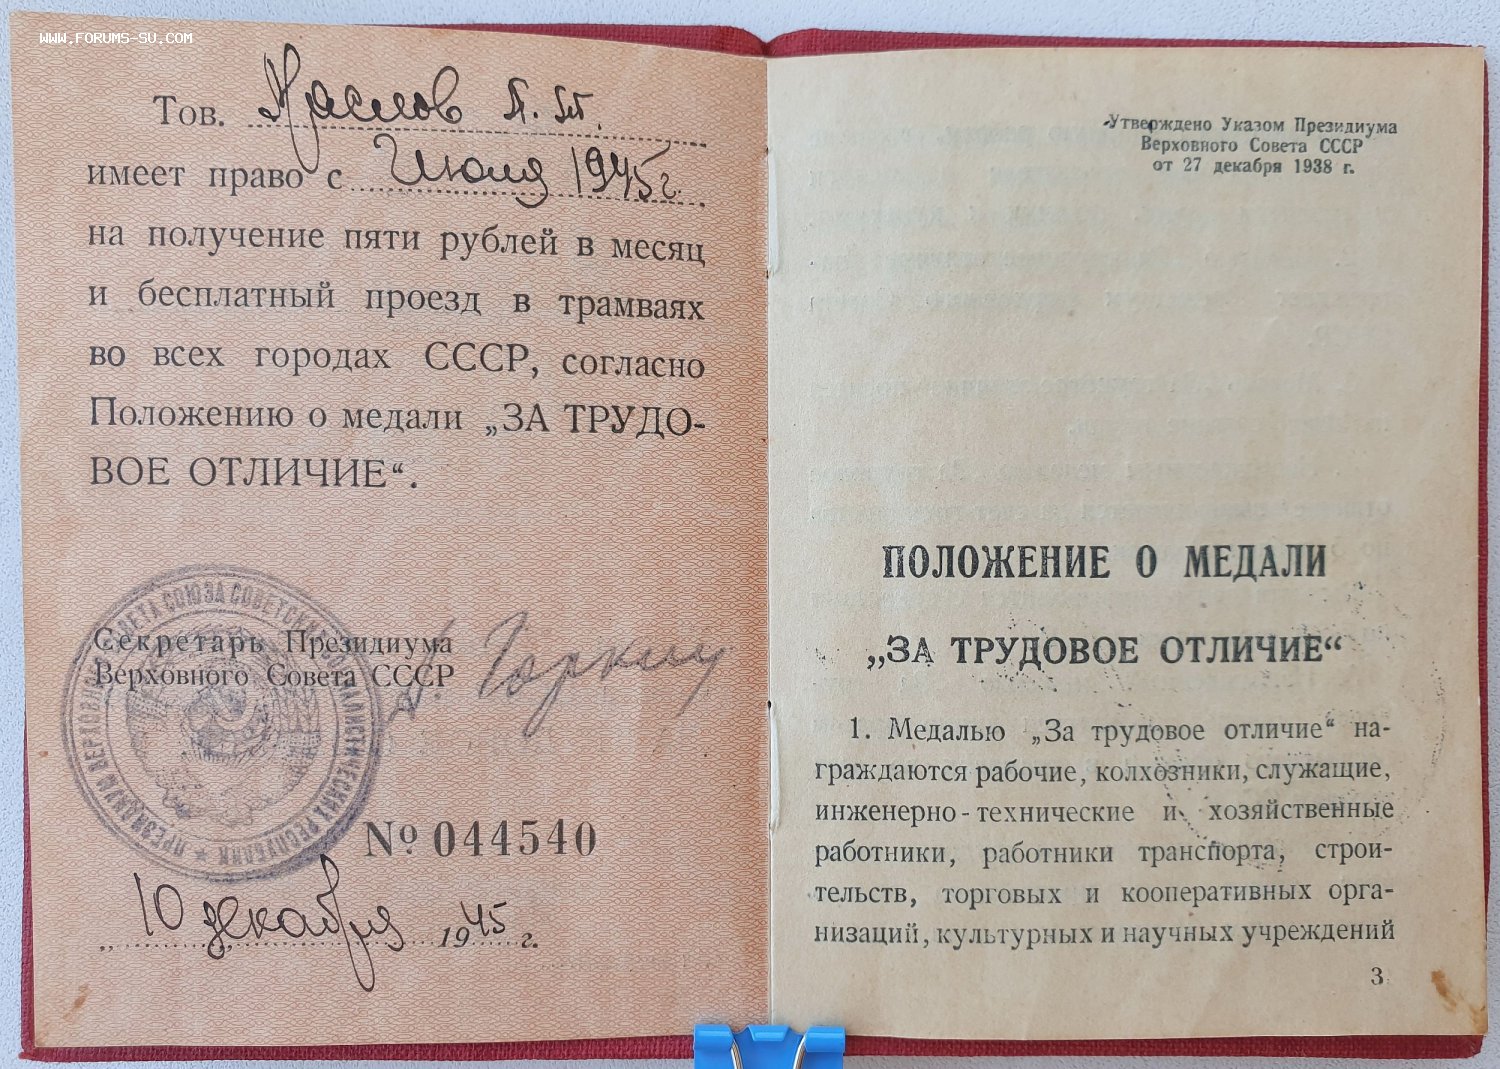 WWW.FORUMS-SU.COM
Тов.
имеет право с Июля 1945 г.
на получение пяти рублей в месяц
и бесплатный проезд в трамваях
во всех городах СССР, согласно
Положению о медали „ЗА ТРУДО-
ВОЕ ОТЛИЧИЕ“.
Секретарь Президиума
Верховного Совета СССР
А. Горкин
ПРЕЗИДИУМ ВЕРХОВНОГО СОВЕТА СОЮЗА СОВЕТСКИХ СОЦИАЛИСТИЧЕСКИХ РЕСПУБЛИК
№ 044540
„10“ декабря 1945 г.
Утверждено Указом Президиума
Верховного Совета СССР
от 27 декабря 1938 г.
ПОЛОЖЕНИЕ О МЕДАЛИ
„ЗА ТРУДОВОЕ ОТЛИЧИЕ“
1. Медалью „За трудовое отличие“ на-
граждаются рабочие, колхозники, служащие,
инженерно-технические и хозяйственные
работники, работники транспорта, строи-
тельств, торговых и кооперативных орга-
низаций, культурных и научных учреждений
3